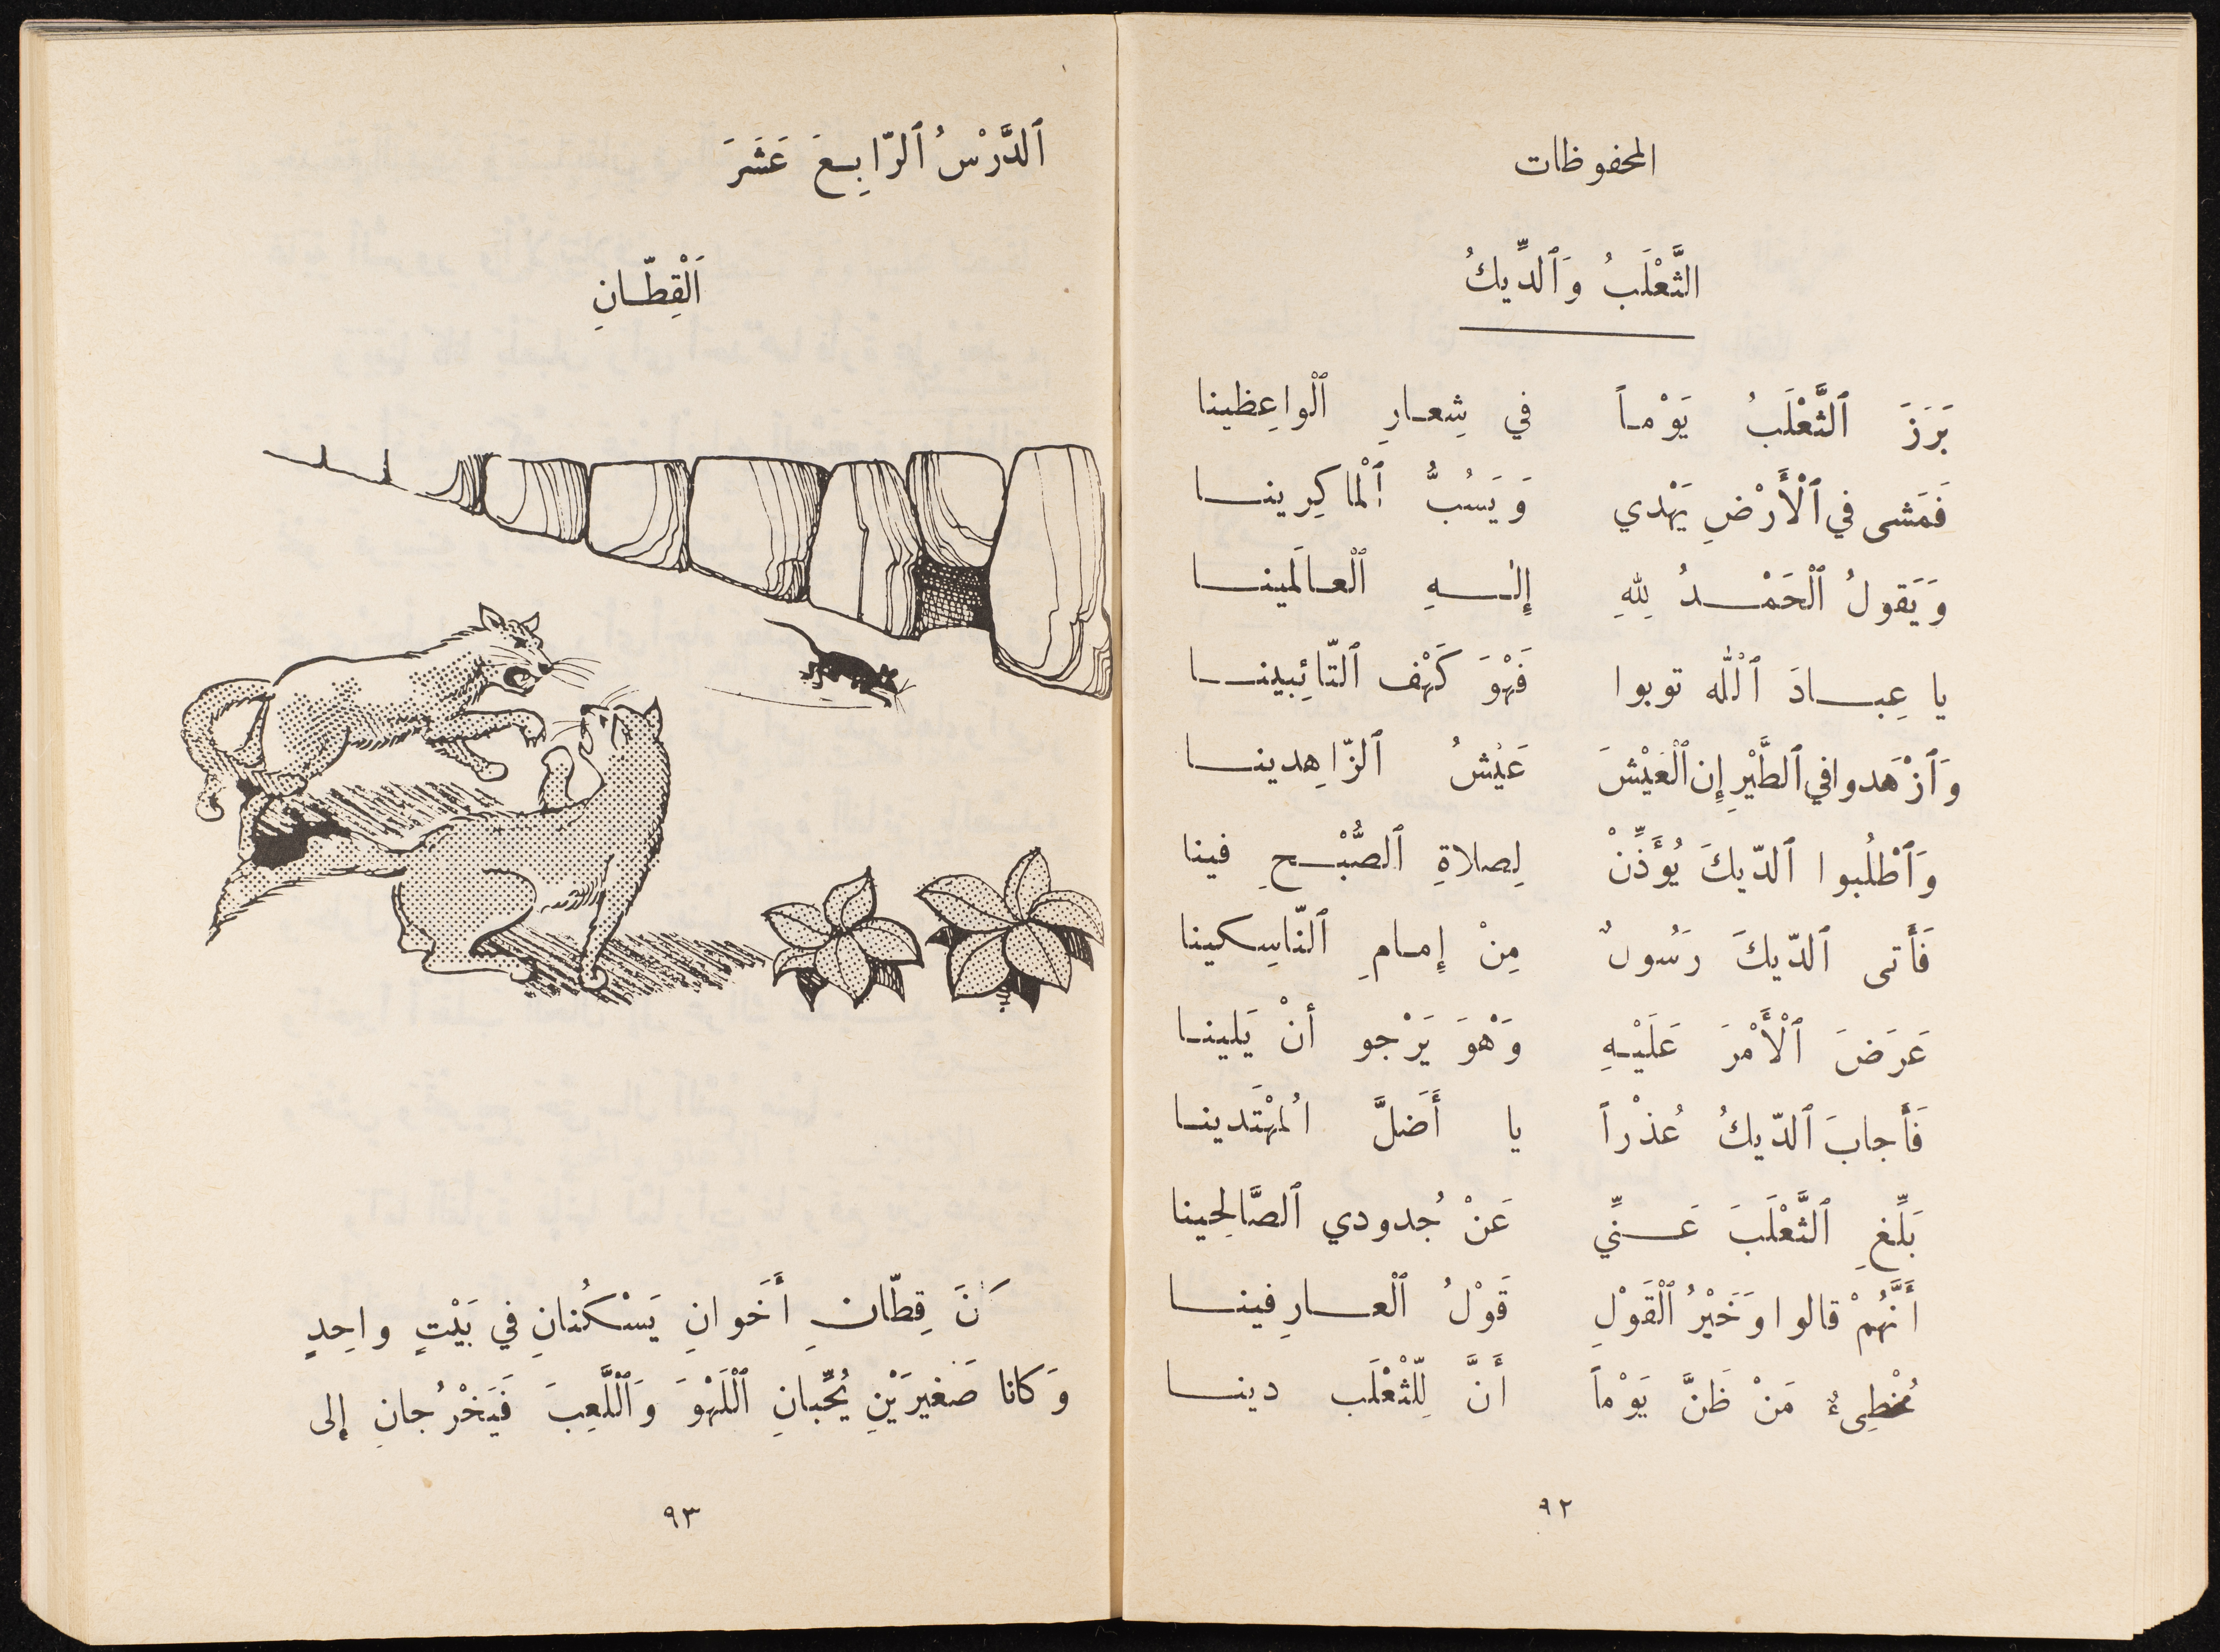 المحفوظات
الثَّعْلَبُ وَٱلدِّيكُ
بَرَزَ ٱلثَّعْلَبُ يَوْماً في شِعارِ ٱلْواعِظينا
فَمَشى في ٱلْأَرْضِ يَهْدي وَيَسُبُّ ٱلْماكِرينا
وَيَقولُ ٱلْحَمْدُ لِلهِ إِلٰهِ ٱلْعالَمينا
يا عِبادَ ٱللّٰه توبوا فَهْوَ كَهْف ٱلتّائِبينا
وَٱزْهَدوا في ٱلطَّيْرِ إِن ٱلْعَيْشَ عَيْشُ ٱلزّاهِدينا
وَٱطْلُبوا ٱلدّيكَ يُؤَذِّنْ لِصلاةِ ٱلصُّبْحِ فينا
فَأَتى ٱلدّيكَ رَسُولٌ مِنْ إِمامِ ٱلنّاسِكينا
عَرَضَ ٱلْأَمْرَ عَلَيْهِ وَهْوَ يَرْجو أنْ يَلينا
فَأَجابَ ٱلدّيكُ عُذْراً يا أَضَلَّ الُمهْتَدينا
بَلِّغِ ٱلثَّعْلَبَ عَنِّي عَنْ جُدودي ٱلصَّالِحينا
أَنَّهُمْ قالوا وَخَيْرُ ٱلْقَوْلِ قَوْلُ ٱلْعارِفينا
مُخْطِىءٌ مَنْ ظَنَّ يَوْماً أَنَّ لِلثَّعْلَب دينا
٩٢
ٱلدَّرْسُ ٱلرّابِعَ عَشَرَ
اَلْقِطّانِ
كَانَ قِطّانِ أَخَوانِ يَسْكُنانِ في بَيْتٍ واحِدٍ
وَكانا صَغيرَيْنِ يُحِبّانِ ٱلْلَهْوَ وَٱلْلَّعِبَ فَيَخْرُجانِ إلى
٩٣